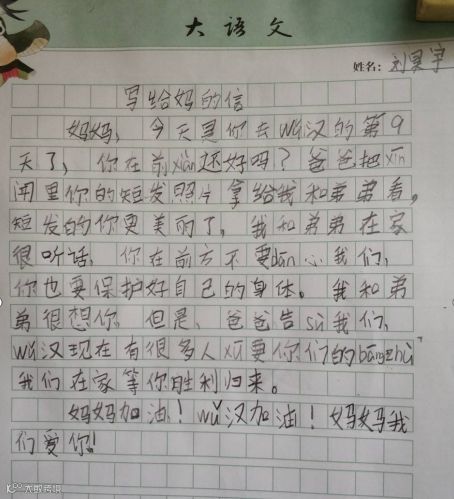 大语文
姓名：刘昊宇
写给妈的信
妈妈，今天是你去wǔ汉的第9
天了，你在前xiàn还好吗？爸爸把xīn
闻里你的短发照片拿给我和弟弟看，
短发的你更美丽了，我和弟弟在家
很听话，你在前方不要dān心我们，
你也要保护好自己的身体。我和弟
弟很想你，但是，爸爸告sù我们，
wǔ汉现在有很多人xū要你们的bāngzhù
我们在家等你胜利归来。
妈妈加油！wǔ汉加油！妈妈我
们爱你！